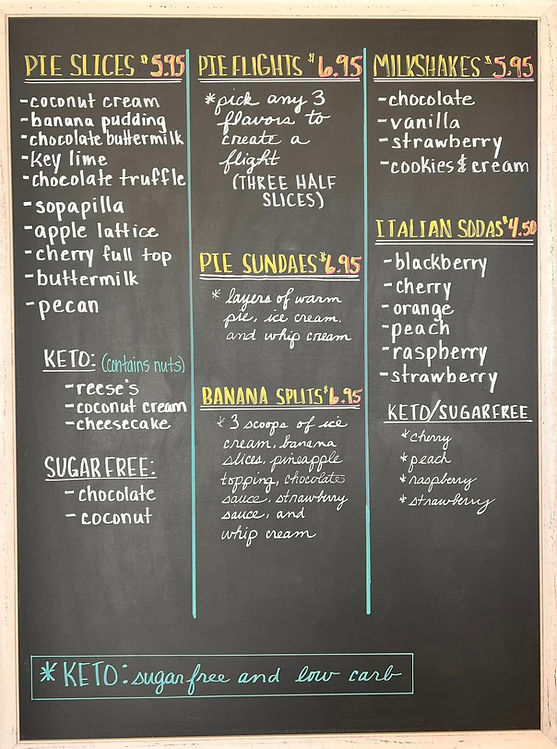 PIE SLICES $5.95
-coconut cream
-banana pudding
-chocolate buttermilk
-Key lime
-chocolate truffle
-sopapilla
-apple lattice
-cherry full top
-buttermilk
-pecan
KETO: (contains nuts)
-reese's
-coconut cream
-cheesecake
SUGAR FREE:
-chocolate
-coconut
PIE FLIGHTS $6.95
*pick any 3
flavors to
create a
flight
(THREE HALF
SLICES)
PIE SUNDAES $6.95
* layers of warm
pie, ice cream,
and whip cream
BANANA SPLITS $6.95
*3 scoops of ice
cream, banana
slices, pineapple
topping, chocolate
sauce, strawberry
sauce, and
whip cream
MILKSHAKES $5.95
-chocolate
-vanilla
-strawberry
-cookies & cream
ITALIAN SODAS $4.50
-blackberry
-cherry
-orange
-peach
-raspberry
-strawberry
KETO/SUGARFREE
*cherry
*peach
*raspberry
*strawberry
*KETO: sugar free and low carb